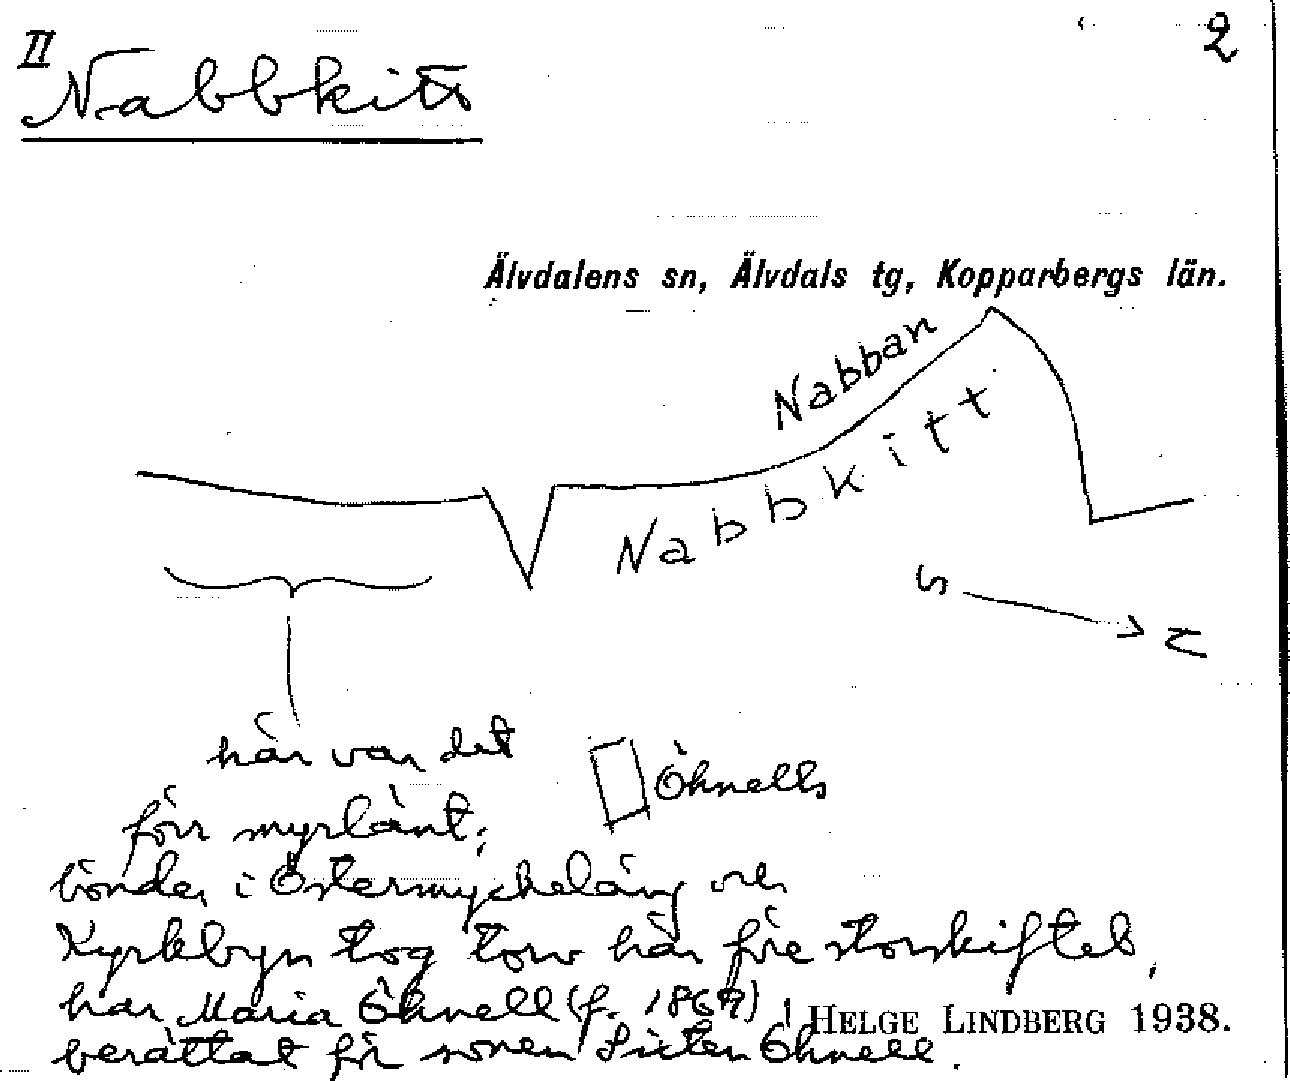 II
2
Nabbkitt
Älvdalens sn, Älvdals tg, Kopparbergs län.
Nabban
Nabbkitt
S
N
här var det
Öhnells
förr myrlänt;
bönder i Östermyckeläng och
Kyrkbyn tog torv här före storskiftet,
har Maria Öhnell (f. 1869)
HELGE LINDBERG 1938.
berättat för sonen Sixten Öhnell.